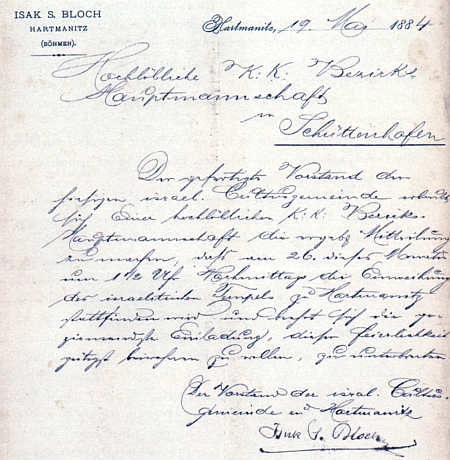 ISAK S. BLOCH
HARTMANITZ
(BÖHMEN)
Hartmanitz, 19. Mai 1884
Hochlöbliche K: K: Bezirks-
Hauptmannschaft
in
Schüttenhofen
Der gefertigte Vorstand der
hiesigen israel. Cultusgemeinde erlaubt
sich Einer hochlöblichen K: K: Bezirks-
Hauptmannschaft die ergebs Mittheilung
zu machen, daß am 26. dieses Monats
um 1 1/2 Uhr Nachmittags die Einweihung
des israelitischen Tempels zu Hartmanitz
stattfinden wird und erlaubt sich die ge-
ziemendste Einladung, dieser Feierlichkeit
gütigst beiwohnen zu wollen, zu unterbreiten
Der Vorstand der isral. Cultus-
gemeinde in Hartmanitz
Isak S. Bloch